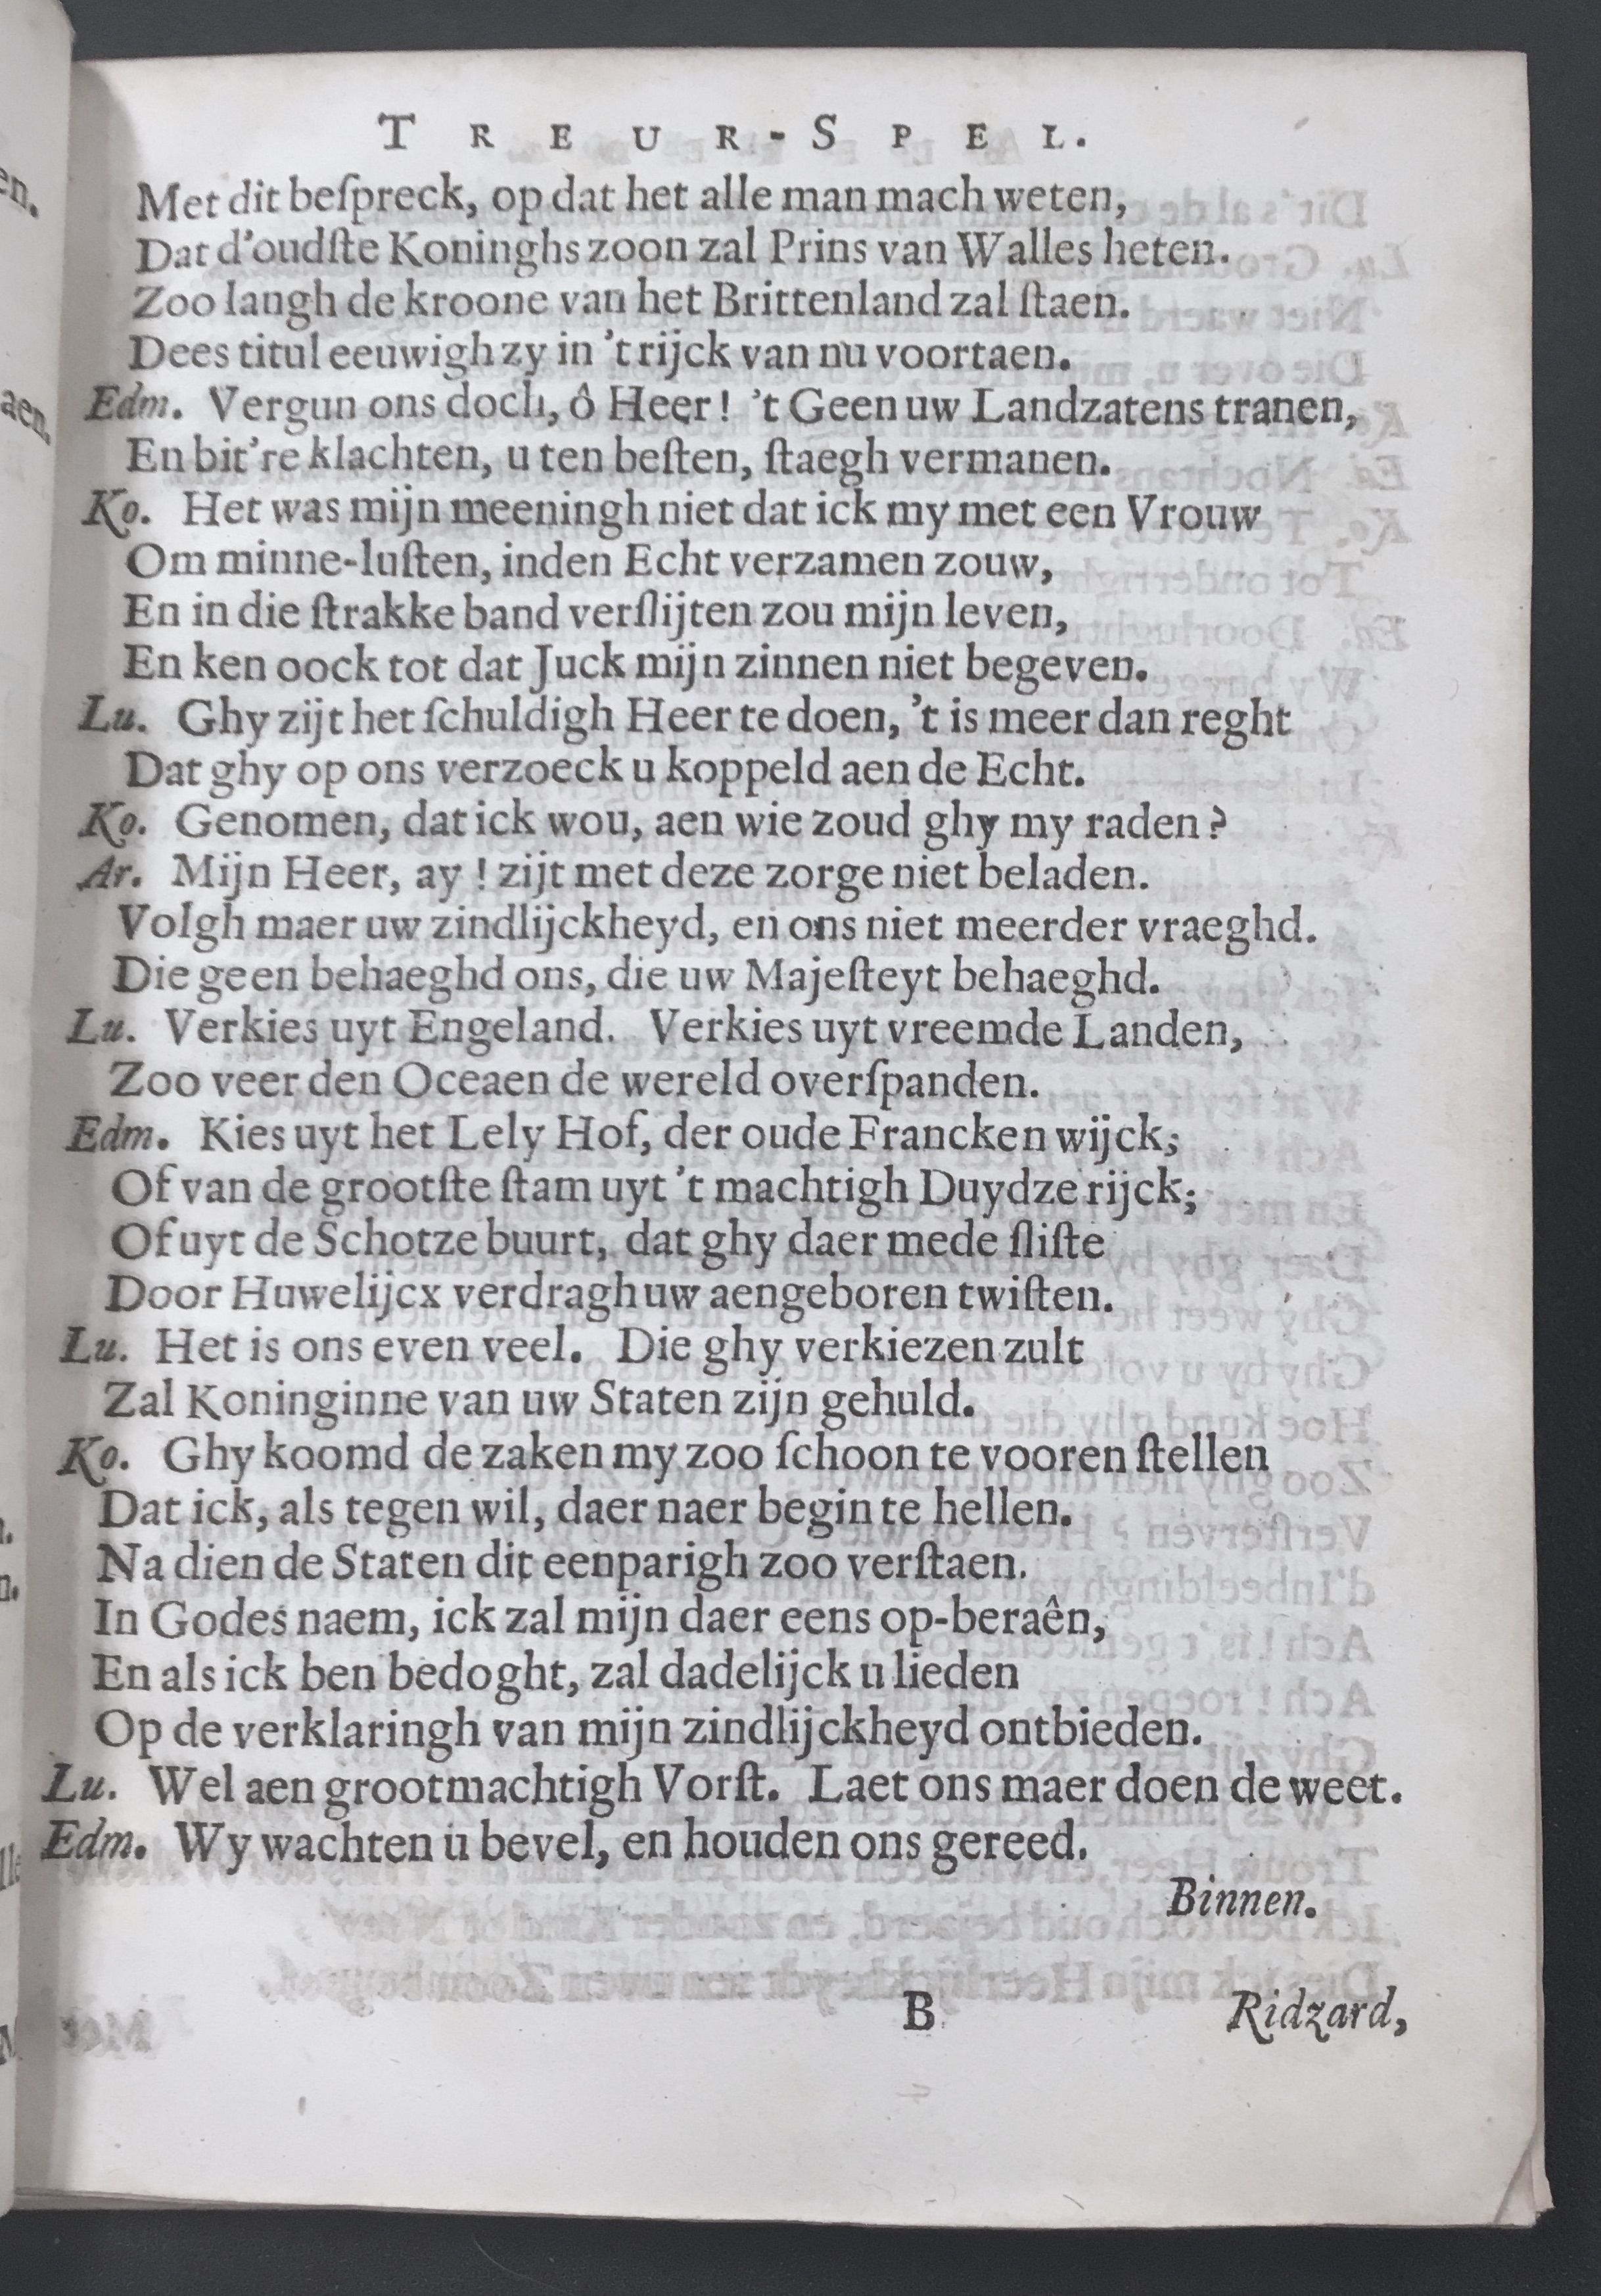 TREUR-SPEL.
Met dit beſpreck, op dat het alle man mach weten,
Dat d'oudſte Koninghs zoon zal Prins van Walles heten.
Zoo langh de kroone van het Brittenland zal ſtaen.
Dees titul eeuwigh zy in 't rijck van nu voortaen.
Edm. Vergun ons doch, ô Heer! 't Geen uw Landzatens tranen,
En bit're klachten, u ten beſten, ſtaegh vermanen.
Ko. Het was mijn meeningh niet dat ick my met een Vrouw
Om minne-luſten, inden Echt verzamen zouw,
En in die ſtrakke band verſlijten zou mijn leven,
En ken oock tot dat Juck mijn zinnen niet begeven.
Lu. Ghy zijt het ſchuldigh Heer te doen, 't is meer dan reght
Dat ghy op ons verzoeck u koppeld aen de Echt.
Ko. Genomen, dat ick wou, aen wie zoud ghy my raden?
Ar. Mijn Heer, ay! zijt met deze zorge niet beladen.
Volgh maer uw zindlijckheyd, en ons niet meerder vraeghd.
Die geen behaeghd ons, die uw Majeſteyt behaeghd.
Lu. Verkies uyt Engeland. Verkies uyt vreemde Landen,
Zoo veer den Oceaen de wereld overſpanden.
Edm. Kies uyt het Lely Hof, der oude Francken wijck;
Of van de grootſte ſtam uyt 't machtigh Duydze rijck;
Of uyt de Schotze buurt, dat ghy daer mede ſliſte
Door Huwelijcx verdragh uw aengeboren twiſten.
Lu. Het is ons even veel. Die ghy verkiezen zult
Zal Koninginne van uw Staten zijn gehuld.
Ko. Ghy koomd de zaken my zoo ſchoon te vooren ſtellen
Dat ick, als tegen wil, daer naer begin te hellen.
Na dien de Staten dit eenparigh zoo verſtaen.
In Godes naem, ick zal mijn daer eens op-beraên,
En als ick ben bedoght, zal dadelijck u lieden
Op de verklaringh van mijn zindlijckheyd ontbieden.
Lu. Wel aen grootmachtigh Vorſt. Laet ons maer doen de weet.
Edm. Wy wachten u bevel, en houden ons gereed.
Binnen.
B Ridzard,